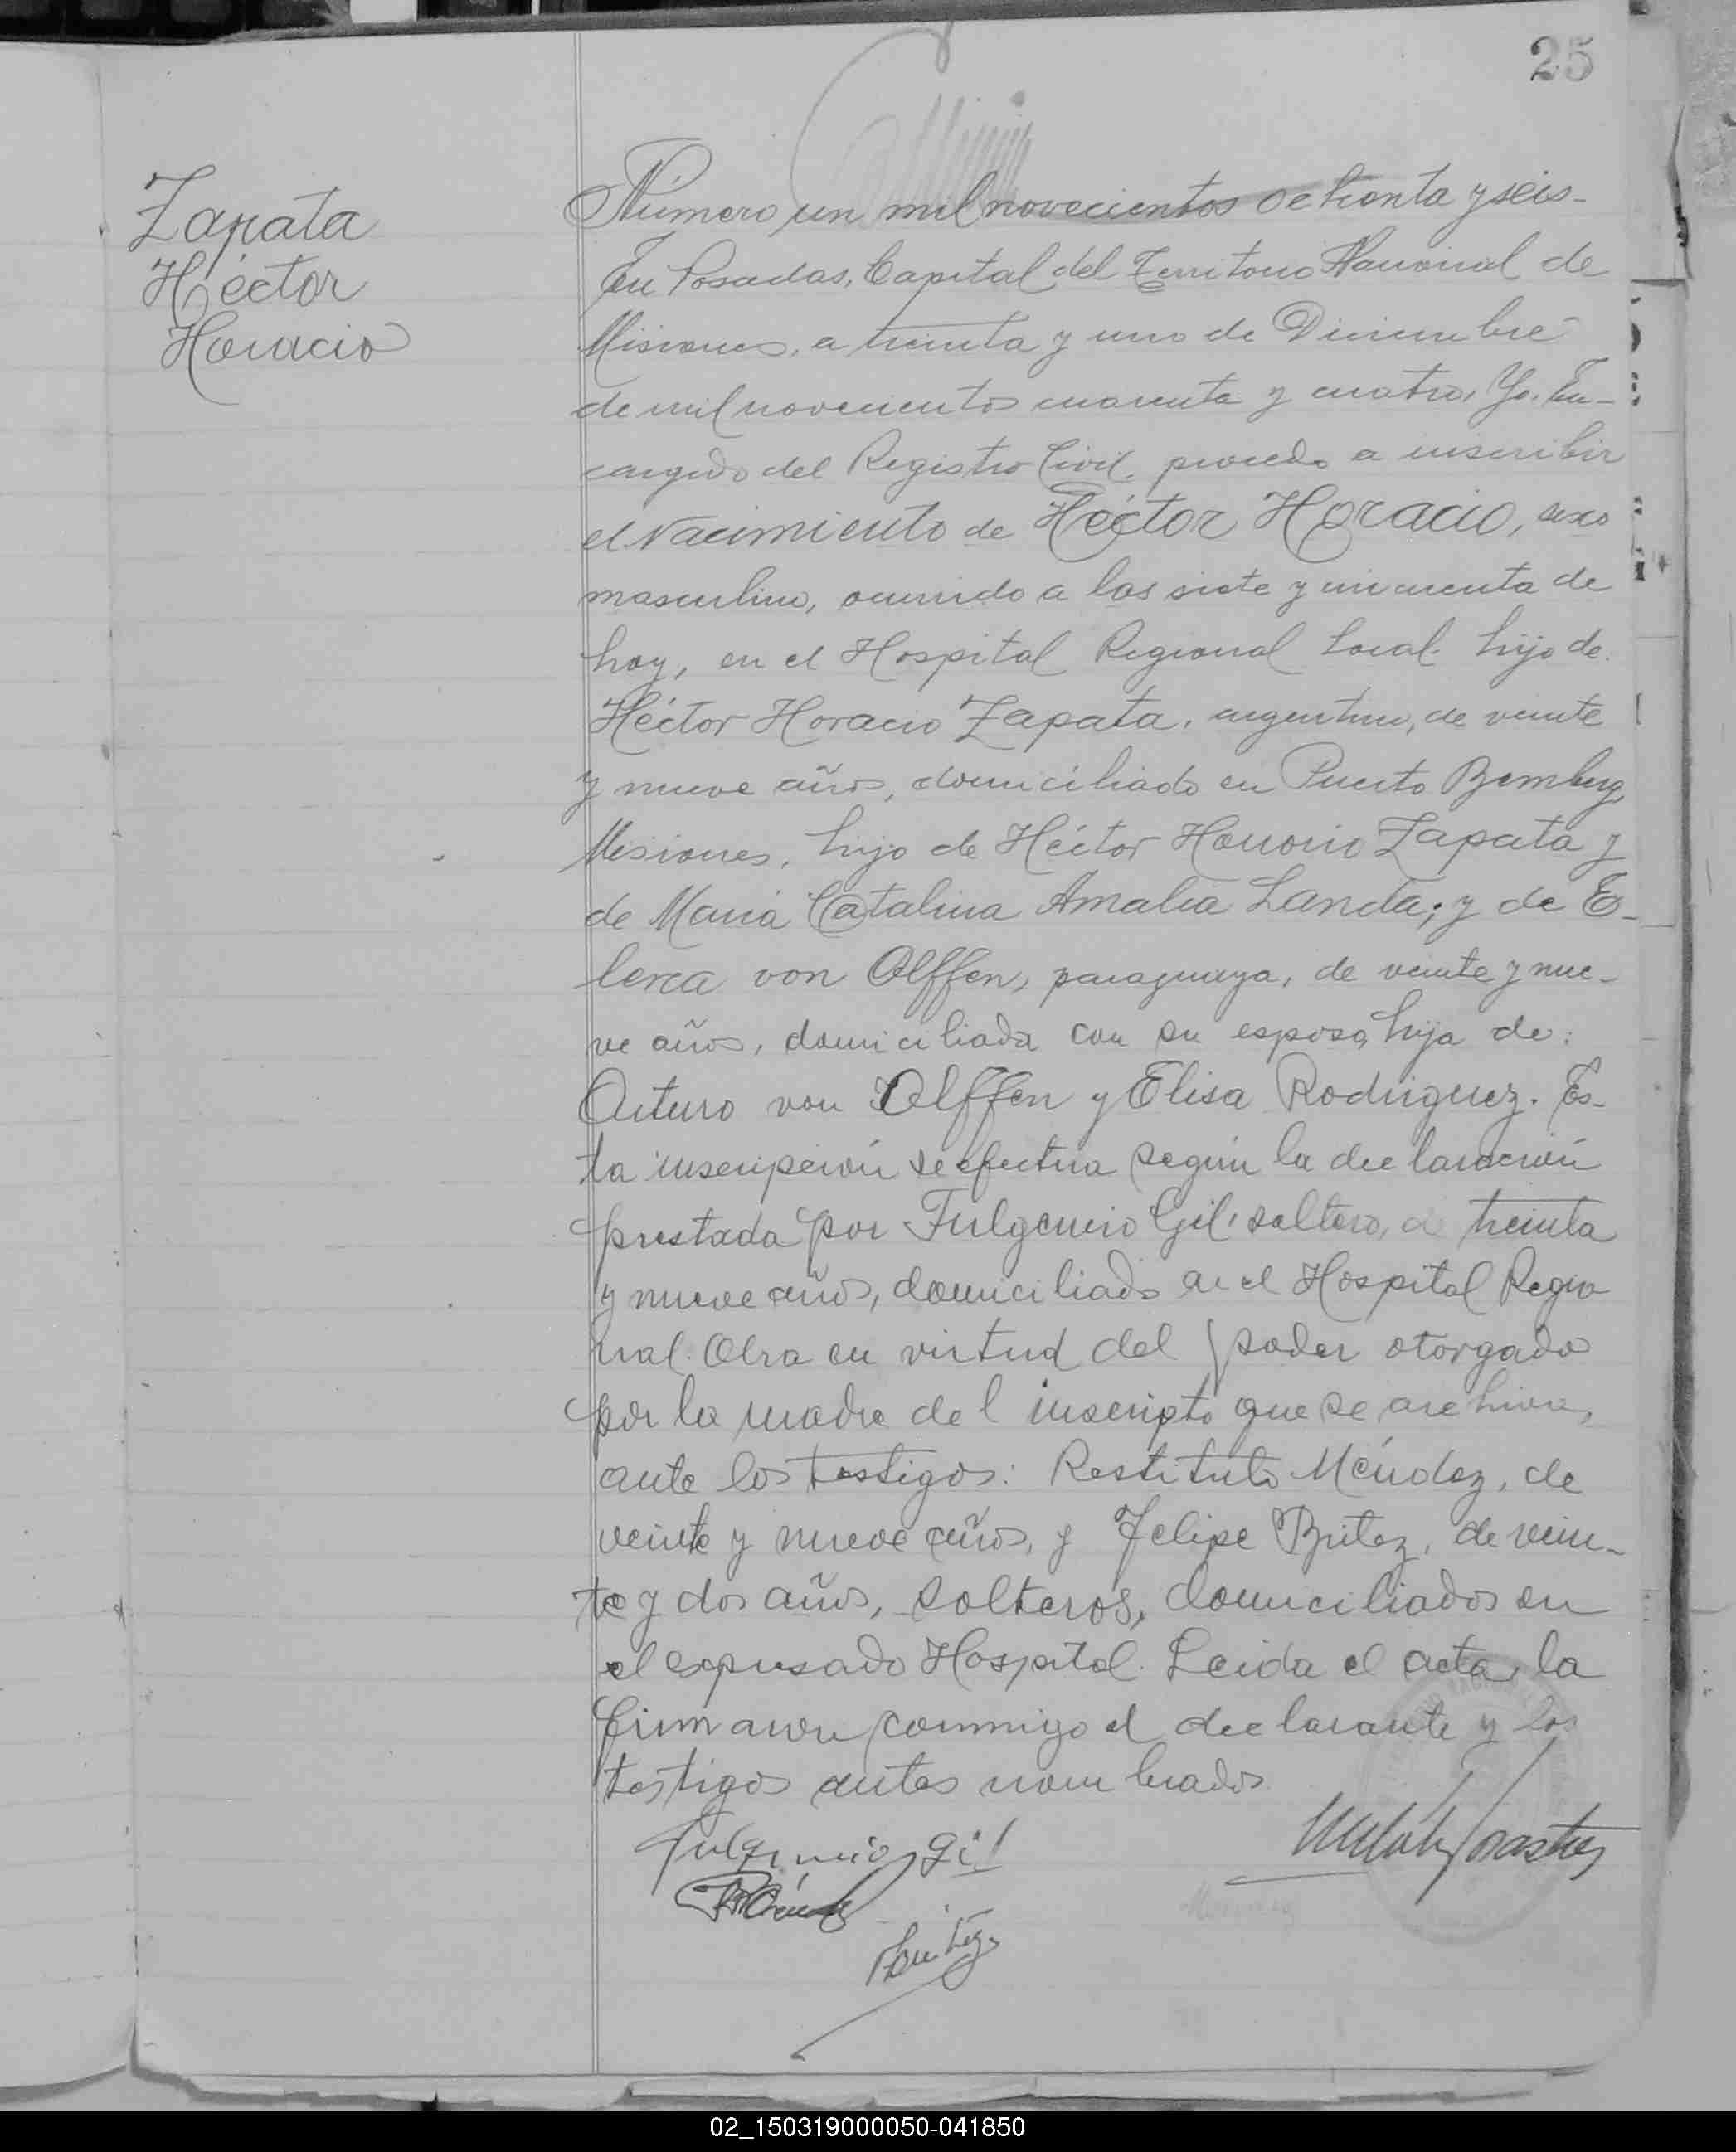 25
Zapata
Héctor
Horacio
Número un mil novecientos ochenta y seis.-
En Posadas, Capital del Territorio Nacional de
Misiones, a treinta y uno de Diciembre
de mil novecientos cuarenta y cuatro, Yo, En-
cargado del Registro Civil, procedo a inscribir
el nacimiento de Héctor Horacio, sexo
masculino, ocurrido a las siete y cincuenta de
hoy, en el Hospital Regional local. hijo de:
Héctor Horacio Zapata, argentino, de veinte
y nueve años, domiciliado en Puerto Bemberg,
Misiones, hijo de Héctor Honorio Zapata y
de Maria Catalina Amalia Landa; y de E-
lena von Olffen, paraguaya, de veinte y nue-
ve años, domiciliada con su esposo, hija de:
Arturo von Olffen y Elisa Rodriguez. Es-
ta inscripción se efectua según la declaración
prestada por Fulgencio Gil, soltero, de treinta
y nueve años, domiciliado en el Hospital Regio
nal. Obra en virtud del poder otorgado
por la madre del inscripto que se archiva,
ante los testigos: Restituto Méndez, de
veinte y nueve años, y Felipe Britez, de vein-
te y dos años, solteros, domiciliados en
el expresado Hospital. Leida el acta, la
firmaron conmigo el declarante y los
testigos antes nombrados.
Fulgencio Gil
02_150319000050-041850